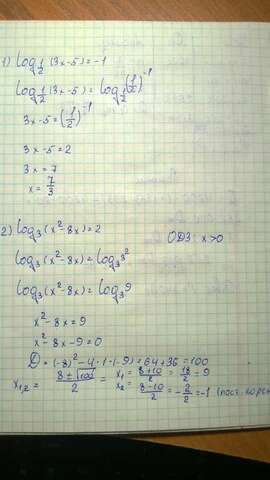 1) log_{1/2} (3x-5) = -1
log_{1/2} (3x-5) = log_{1/2} (1/2)^{-1}
3x-5 = (1/2)^{-1}
3x-5 = 2
3x = 7
x = 7/3
2) log_3 (x²-8x) = 2
ОДЗ: x>0
log_3 (x²-8x) = log_3 3²
log_3 (x²-8x) = log_3 9
x²-8x = 9
x²-8x-9 = 0
D = (-8)²-4·1·(-9) = 64+36 = 100
x_{1,2} = (8±√100)/2 = x_1 = (8+10)/2 = 18/2 = 9
x_2 = (8-10)/2 = -2/2 = -1 (пост. корень